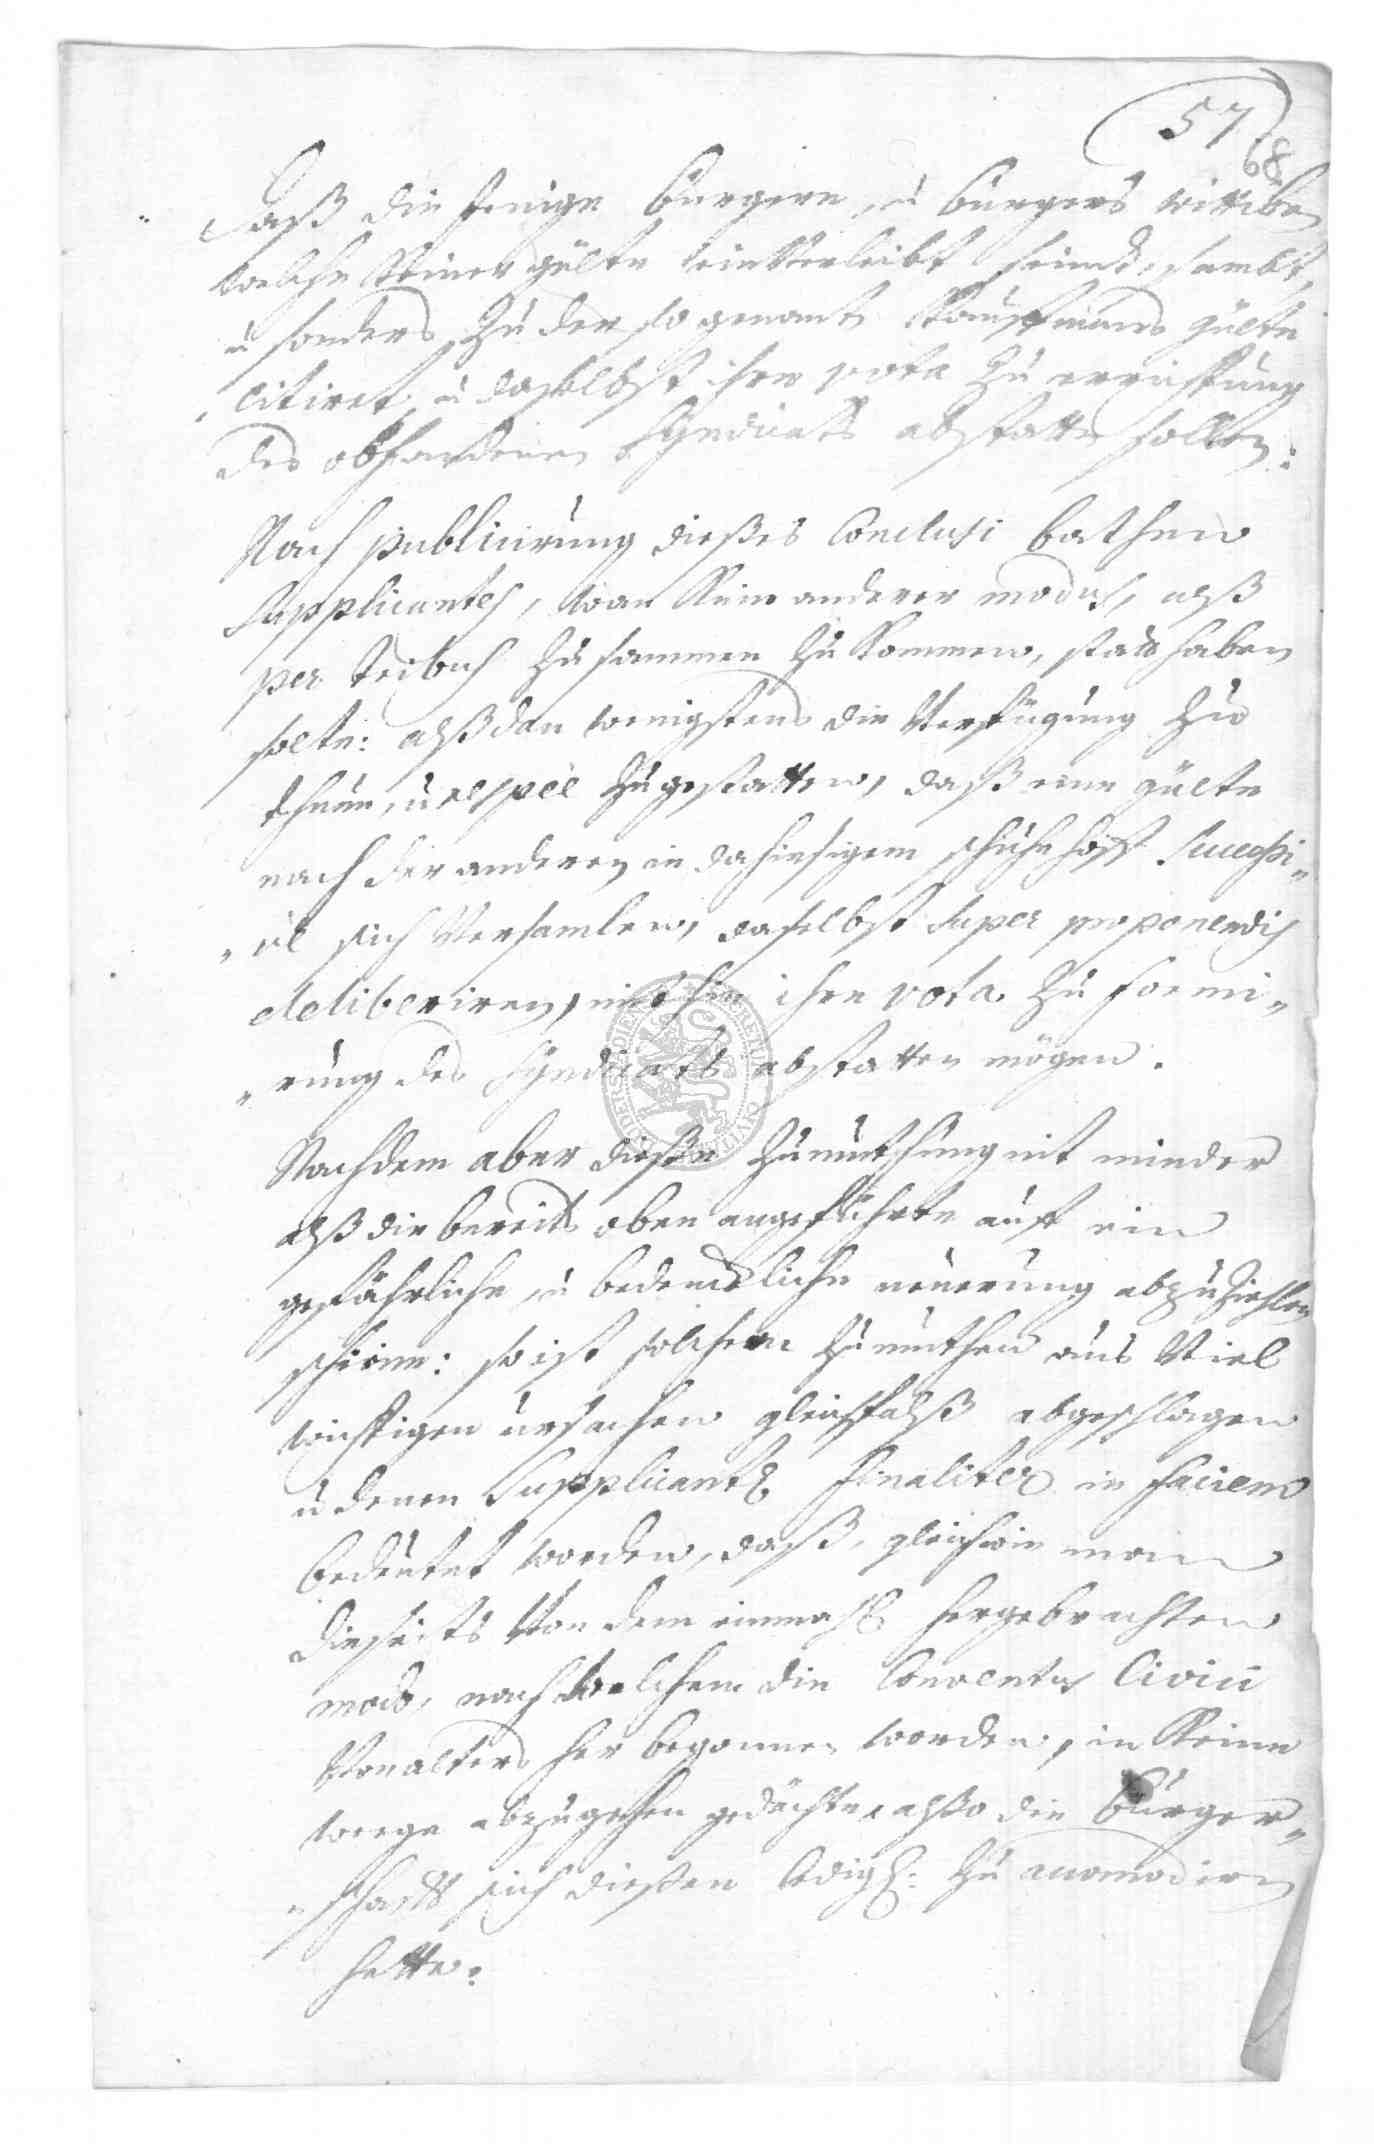 57
68
Daß die jenige burgere, ù burgers wittiben
welche keiner gülte einverleibt seind, sambt
ù sonders zu der so genante Kauffmans gülte
citiret, ù daselbst ihre vota zu errichtung
des obhandenen Syndicats abstatte sollen:
Nach publicirung dießes Conclusi bathen
Supplicantes, wan kein anderer modus, alß
per tribus zu sammen zu kommen, statt haben
solte: alßdan wenigstens die verfügung zu
thuen, ù respec zugestatten, daß eine gülte
nach der anderen in dahiesigem schuhehoff Successi„
„ve sich versamlen, daselbst super proponendis
deliberiren, mithin ihre vota zu formi„
„rung des Syndicats abstatten mögen.
Nachdem aber dieße zumuthung nit minder
alß die bereits oben angeführte auff ein
gefährliche, ù bedenckliche neuerung abzuziehlen
schiene: so ist solchem zumuthen aus viel
wichtigen ursachen gleichfalß abgeschlagen
ù denen Supplicants finaliter in faciem
bedeutet worden, daß, gleichwie man
dieseits von dem einmahl hergebrachten
modo, nach welchem die Conventus Civici
von alters her begonnen worden, in keine
weege abzugehen gedächte, alßo die burger„
„schafft sich dießen zu accomodiren
hette.
SECRETUM CIVIT